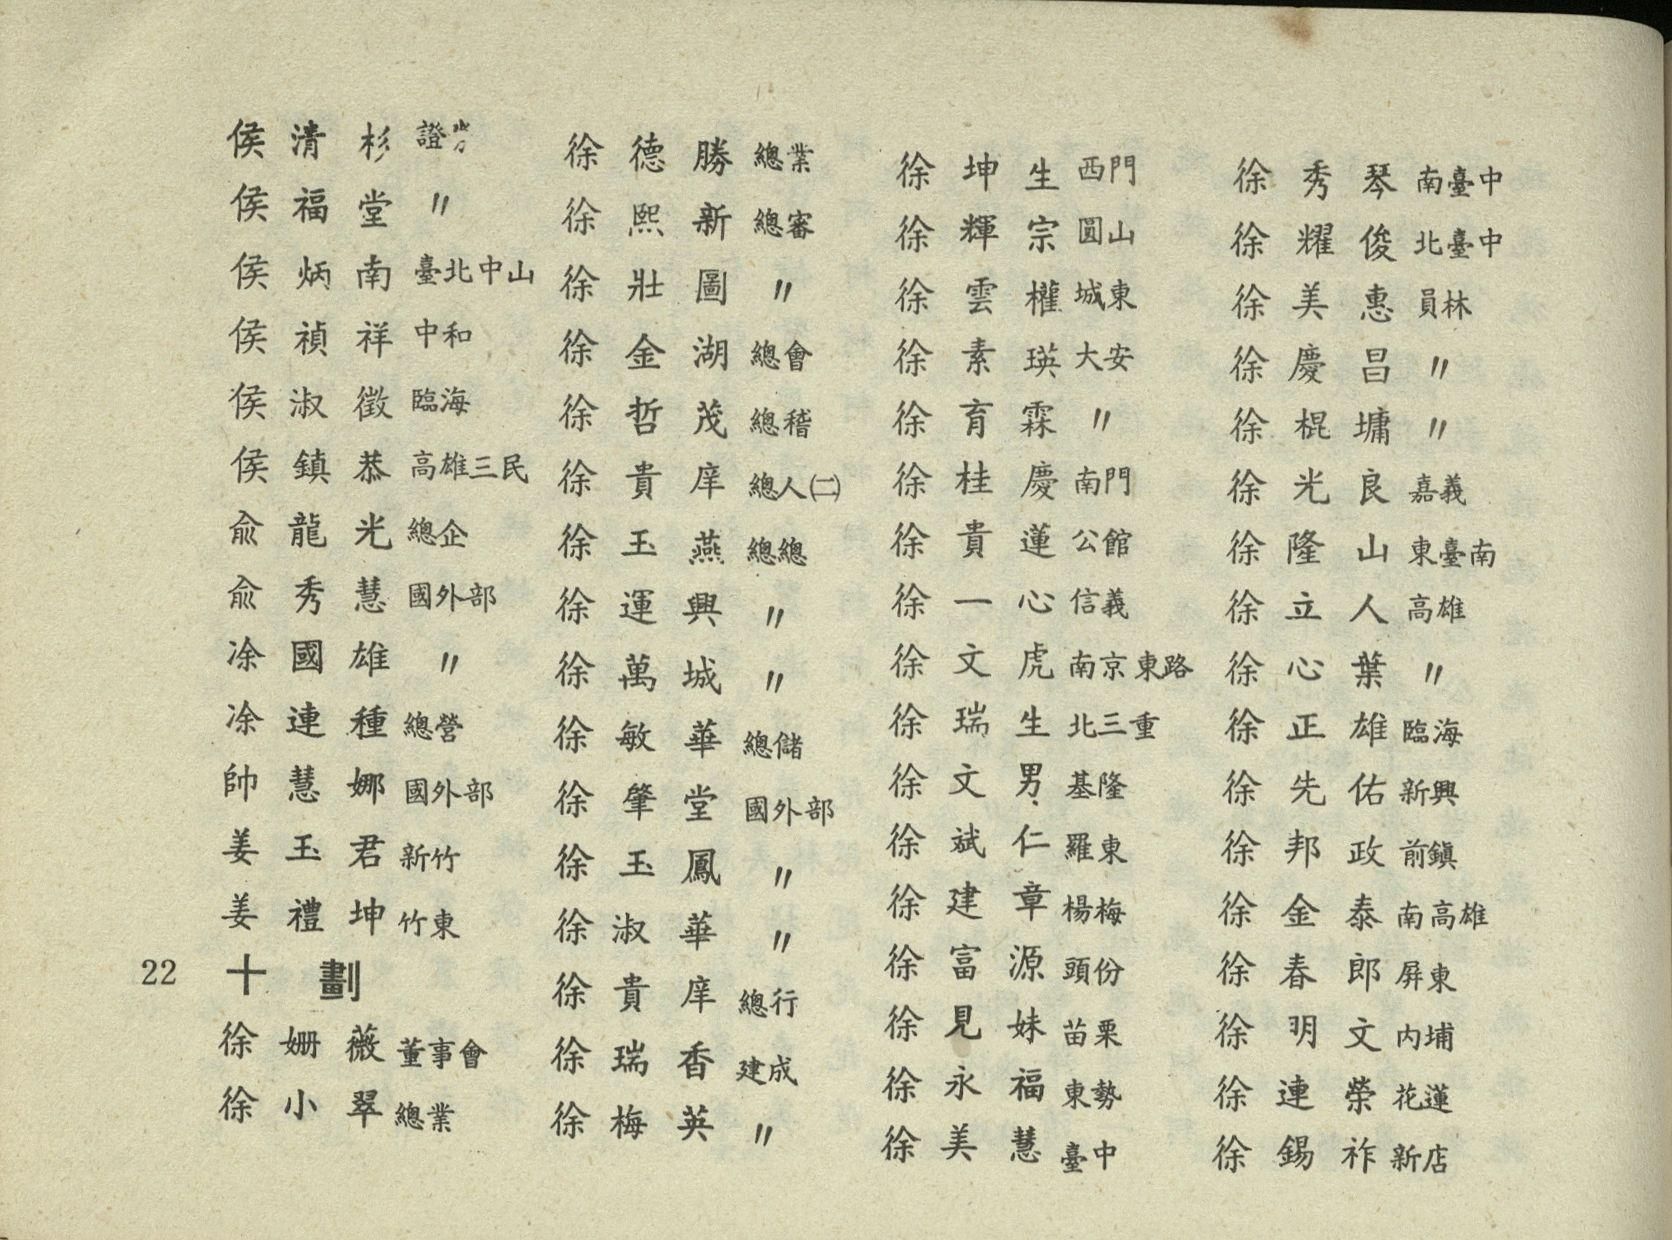 侯清杉 證券
侯福堂 〃
侯炳南 臺北中山
侯禎祥 中和
侯淑徵 臨海
侯鎮恭 高雄三民
俞龍光 總企
俞秀慧 國外部
凃國雄 〃
凃連種 總營
帥慧娜 國外部
姜玉君 新竹
姜禮坤 竹東
22 十劃
徐姍薇 董事會
徐小翠 總業
徐德勝 總業
徐熙新 總審
徐壯圖 〃
徐金湖 總會
徐哲茂 總稽
徐貴庠 總人㈡
徐玉燕 總總
徐運興 〃
徐萬城 〃
徐敏華 總儲
徐肇堂 國外部
徐玉鳳 〃
徐淑華 〃
徐貴庠 總行
徐瑞香 建成
徐梅英 〃
徐坤生 西門
徐輝宗 圓山
徐雲權 城東
徐素瑛 大安
徐育霖 〃
徐桂慶 南門
徐貴蓮 公館
徐一心 信義
徐文虎 南京東路
徐瑞生 北三重
徐文男 基隆
徐斌仁 羅東
徐建章 楊梅
徐富源 頭份
徐見妹 苗栗
徐永福 東勢
徐美慧 臺中
徐秀琴 南臺中
徐耀俊 北臺中
徐美惠 員林
徐慶昌 〃
徐棍墉 〃
徐光良 嘉義
徐隆山 東臺南
徐立人 高雄
徐心葉 〃
徐正雄 臨海
徐先佑 新興
徐邦政 前鎮
徐金泰 南高雄
徐春郎 屏東
徐明文 內埔
徐連榮 花蓮
徐錫祚 新店